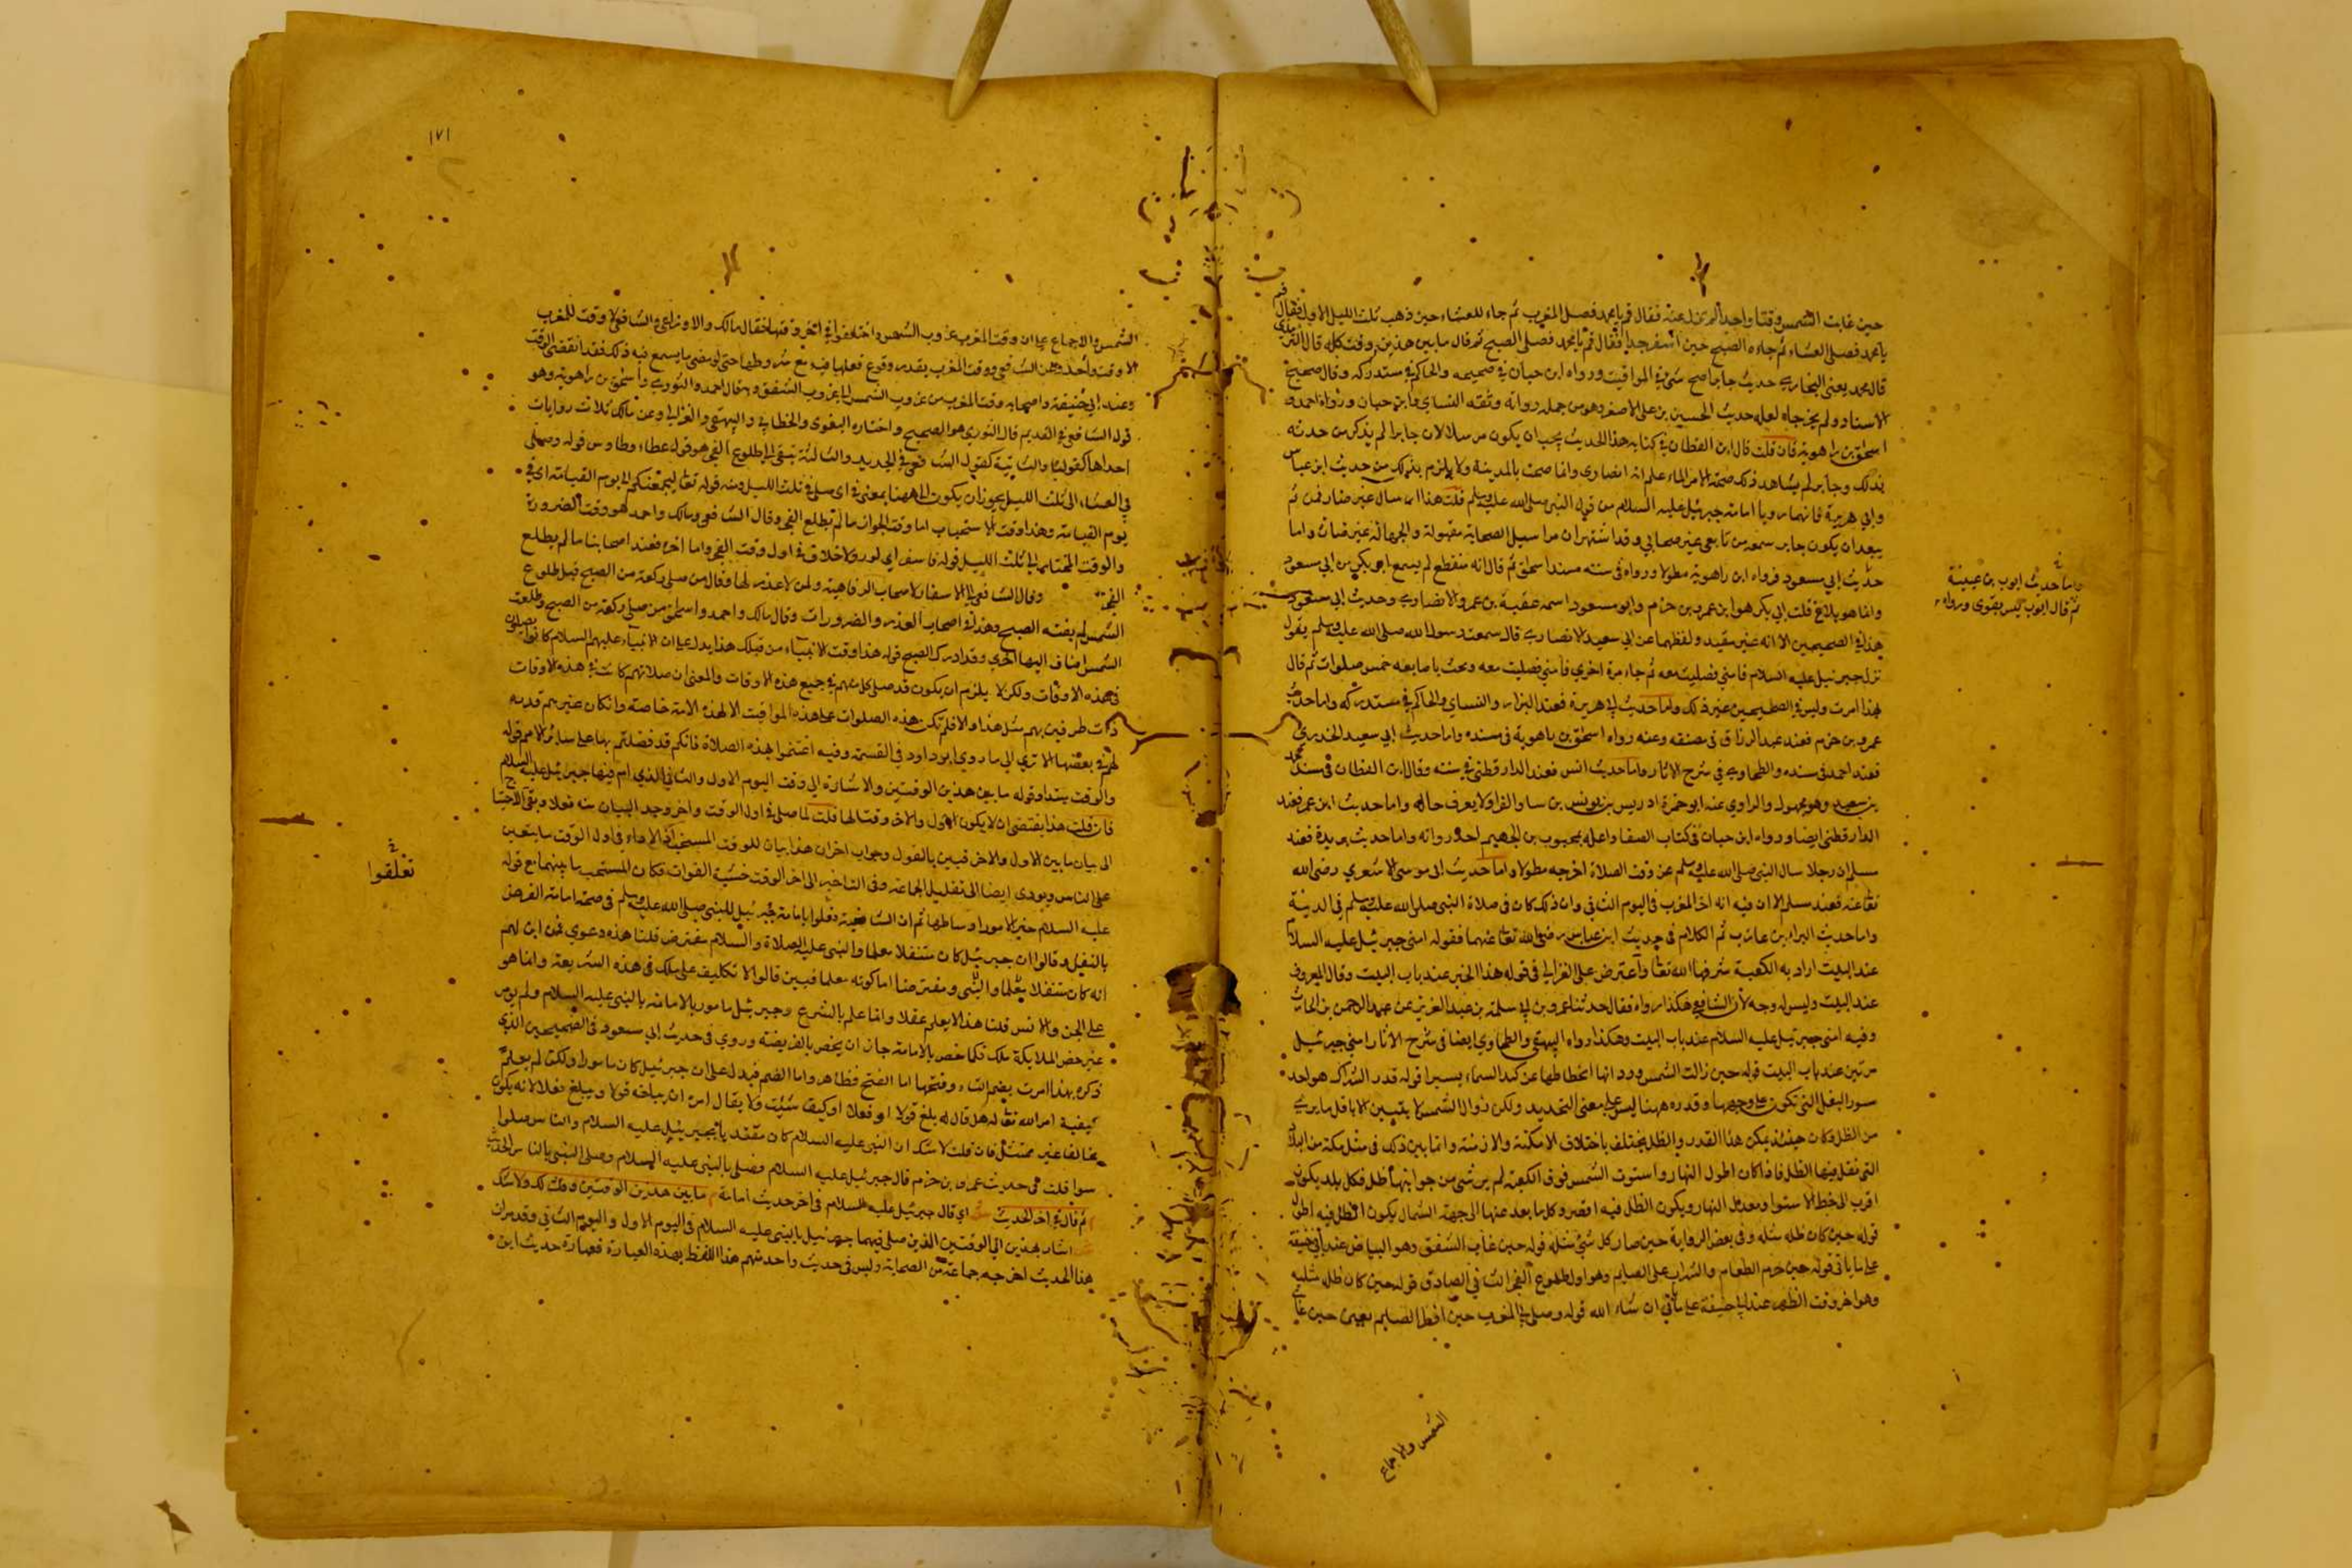 حين غابت الشمس وقتا واحدا لم يزل عنه فقال قم يا محمد فصل المغرب ثم جاء للعشاء حين ذهب ثلث الليل الاول فقال قم
يا محمد فصلى العشاء ثم جاءه الصبح حين اسفر جدا فقال قم يا محمد فصلى الصبح ثم قال ما بين هذين وقت كله قال الترمذي
قال محمد يعني البخاري حديث جابر اصح شيء في المواقيت ورواه ابن حبان في صحيحه والحاكم في مستدركه وقال صحيح
الاسناد ولم يخرجاه لعله حديث الحسين بن علي الاصغر وهو من جملة رواته وثقه النسائي وابن حبان ورواه احمد و
اسحق بن راهويه فان قلت قال ابن القطان في كتابه هذا الحديث يجب ان يكون مرسلا لان جابرا لم يذكر من حدثه
بذلك وجابر لم يشاهد ذلك صبيحة الاسراء لما علم انه انصاري وانما صحب بالمدينة ولا يلزم بذلك من حديث ابن عباس
وابي هريرة فانهما رويا امامة جبرئيل عليه السلام من قول النبي صلى الله عليه وسلم قلت هذا ارسال غير ضار فمن ثم
يبعد ان يكون جابر سمعه من تابعي عن صحابي وقد اشتهر ان مراسيل الصحابة مقبولة والجهالة غير ضارة واما
حديث ابي مسعود فرواه ابن راهويه مطولا ورواه في سنه مسند اسحق ثم قال انه منقطع لم يسمع ابو بكر من ابي مسعود
وانما هو بلاغ قلت ابي بكر هو ابن عمرو بن حزم وابو مسعود اسمه عقبة بن عمرو الانصاري وحديث ابي مسعود
هذا في الصحيحين الا انه غير مقيد ولفظهما عن ابي سعيد الانصاري قال سمعت رسول الله صلى الله عليه وسلم يقول
نزل جبرئيل عليه السلام فامني فصليت معه ثم جاء مرة اخرى فامني فصليت معه وبحث باصابعه خمس صلوات ثم قال
بهذا امرت وليس في الصحيحين غير ذلك واما حديث ابي هريرة فعند البزار والنسائي والحاكم في مستدركه واما حديث
عمرو بن حزم فعند عبد الرزاق في مصنفه وعنه رواه اسحق بن راهوية في مسنده واما حديث ابي سعيد الخدري
فعند احمد في مسنده والطحاوي في شرح الاثار واما حديث انس فعند الدارقطني في سننه وقال ابن القطان في سنده محمد
بن سعيد وهو مجهول والراوي عنه ابو حمزة ادريس بن يونس بن سا والفرا ولا يعرف حاله واما حديث ابن عمر فعند
الدارقطني ايضا ورواه ابن حبان في كتاب الضعفا واعله بمحبوب بن الجهم احد رواته واما حديث بريدة فعند
مسلم ان رجلا سال النبي صلى الله عليه وسلم عن وقت الصلاة اخرجه مطولا واما حديث ابي موسى الاشعري رضي الله
تعا عنه فعند مسلم الا ان فيه انه اخر المغرب في اليوم الثاني وان ذلك كان في صلاة النبي صلى الله عليه وسلم في المدينة
واما حديث البراء بن عازب ثم الكلام في حديث ابن عباس رضي الله تعا عنهما فقوله امني جبرئيل عليه السلام
عند البيت اراد به الكعبة شرفها الله تعا واعترض على الغزالي في قوله هذا الخبر عند باب البيت وقال المعروف
عند البيت وليس له وجه لان الشافعي هكذا رواه فقال حدثنا عمرو بن ابي سلمة بن عبد العزيز عن عبد الرحمن بن الحارث
وفيه امني جبرئيل عليه السلام عند باب البيت وهكذا رواه البيهقي والطحاوي ايضا في شرح الاثار امني جبرئيل
مرتين عند باب البيت قوله حين زالت الشمس ودوانها انحطاطها عن كبد السماء يسيرا قوله قدر الشراك هو احد
سور النعل التي تكون على وجهها وقدره ههنا ليس على معنى التحديد ولكن زوال الشمس لا يتبين الا باقل ما يرى
من الظل وكان حينئذ بمكة هذا القدر والظل يختلف باختلاف الامكنة والازمنة وانما بين ذلك في مثل مكة من البلاد
التي تقل فيها الظل فاذا كان اطول النهار واستوت الشمس فوق الكعبة لم ير شي من جوانبها ظل فكل بلد يكون
اقرب الى خط الاستوا ومعدل النهار ويكون الظل فيه اقصر وكل ما بعد عنها الى جهة الشمال يكون الظل فيه اطول
قوله حين كان ظله مثله وفي بعض الرواية حين صار كل شيء مثله قوله حين غاب الشفق وهو البياض عند ابي حنيفة
على ما ياتي قوله حين حرم الطعام والشراب على الصايم وهو اول طلوع الفجر الثاني الصادق قوله حين كان ظل مثليه
وهو اخر وقت الظهر عند ابي حنيفة على ما ياتي ان شاء الله قوله وصلى في المغرب حين افطر الصايم يعني حين غاب
واما حديث ايوب بن عيينة
ثم قال ايوب ليس بقوى ورواه
الشمس والاجماع
١٧١
الشمس والاجماع على ان وقت المغرب غروب الشمس واختلفوا في اخر وقتها فقال مالك والاوزاعي والشافعي لا وقت للمغرب
الا وقت واحد وعن الشافعي ووقت المغرب بقدر وقوع فعلها فيه مع شروطها حتى لو مضى ما يسع فيه ذلك فقد انقضى الوقت
وعند ابي حنيفة واصحابه وقت المغرب من غروب الشمس الى غروب الشفق وبه قال احمد والثوري واسحق بن راهوية وهو
قول الشافعي في القديم قال النووي هو الصحيح واختاره البغوي والخطابي والبيهقي والغزالي وعن مالك ثلاث روايات
احداها كقولنا والثانية كقول الشافعي في الجديد والثالثة تبقى الى طلوع الفجر هو قول عطاء وطاوس قوله وصلى
في العشاء الى ثلث الليل يجوز ان يكون الى ههنا بمعنى في اي صلى في ثلث الليل ومنه قوله تعا ليجمعنكم الى يوم القيامة اي في
يوم القيامة وهذا وقت الاستحباب اما وقت الجواز ما لم تطلع الفجر وقال الشافعي ومالك واحمد هو وقت الضرورة
والوقت المختار الى ثلث الليل قوله فاسفر اي نور ولا خلاف في اول وقت الفجر واما اخره فعند اصحابنا ما لم يطلع
الفجر وقال الشافعي الى الاسفار لاصحاب الرفاهية ولمن لا عذر لها وقال من صلى ركعة من الصبح قبل طلوع
الشمس لم يفته الصبح وهذا في اصحاب العذر والضرورات وقال مالك واحمد واسحق من صلى ركعة من الصبح وطلعت
الشمس اضاف اليها اخرى وقد ادرك الصبح قوله هذا وقت الانبياء من قبلك هذا يدل على ان الانبياء عليهم السلام كانوا يصلون
في هذه الاوقات ولكن لا يلزم ان يكون قد صلى كل منهم في جميع هذه الاوقات والمعنى ان صلاتهم كانت في هذه الاوقات
ذات طرفين بهم مثل هذا والا فلم تكن هذه الصلوات على هذه المواقيت الا لهذه الامة خاصة وان كان غيرهم قد
لهم في بعضها الا ترى الى ما روى ابو داود في القسمة وفيه اعتموا بهذه الصلاة فانكم قد فضلتم بها على سائر الامم قوله
والوقت مبتدا وقوله ما بين هذين الوقتين والاشارة الى وقت اليوم الاول والثاني الذي ام فيها جبرئيل عليه السلام
فان قلت هذا يقتضي ان لا يكون الاول والاخر وقتا لها قلت لما صلى في اول الوقت واخر وجد البيان منه فعلا وبقي الاحتياج
الى بيان ما بين الاول والاخر فبين بالقول وجواب اخر ان هذا بيان للوقت المستحب الاداء في اول الوقت ما يتعين
على الناس ويودي ايضا الى تقليل الجماعة وفى التاخير الى اخر الوقت خشية الفوات فكان المستحب ما بينهما مع قوله
عليه السلام خير الامور اوساطها ثم ان الشافعية تعلوا بامامة جبرئيل للنبي صلى الله عليه وسلم في صحة امامة الفرض
بالنفل وقالوا ان جبرئيل كان متنفلا معلما والنبي عليه الصلاة والسلام مفترض قلنا هذه دعوي فمن اين لهم
انه كان متنفلا معلما والنبي ومفترضا اما كونه معلما فبين قالوا لا تكليف على ملك في هذه الشريعة وانما هو
على الجن والانس قلنا هذا لا يعلم عقلا وانما علم بالشرع وجبرئيل مامور بالامامة بالنبي عليه السلام ولم يومر
غيره من الملائكة ملك فكما خص بالامامة جاز ان يخص بالفريضة وروي في حديث ابي مسعود في الصحيحين الذي
ذكره بهذا امرت بضم التاء وفتحها اما الفتح فظاهر واما الضم فيدل على ان جبرئيل كان مامورا ولكنا لم نعلم
كيفية امر الله تعا له هل قال له بلغ قولا او فعلا او كيف شئت ولا يقال امره ان يبلغه قولا وبلغ فعلا لانه يكون
مخالفا غير ممتثل فان قلت لا شك ان النبي عليه السلام كان مقتد يا بجبرئيل عليه السلام والناس صلوا
سوا قلت في حديث عمرو بن حزم قال جبرئيل عليه السلام فصلى بالنبي عليه السلام وصلى النبي بالناس الحديث
ثم قال في اخر الحديث اي قال جبرئيل عليه السلام في اخر حديث امامة ما بين هذين الوقتين وقت لك ولامتك
اشار بهذين الى الوقتين الذين صلى فيهما جبرئيل بالنبي عليه السلام في اليوم الاول واليوم الثاني وقد مر ان
هذا الحديث اخرجه جماعة من الصحابة وليس في حديث واحد منهم هذا اللفظ بهذه العبارة فعبارة حديث ابن
تعلقوا